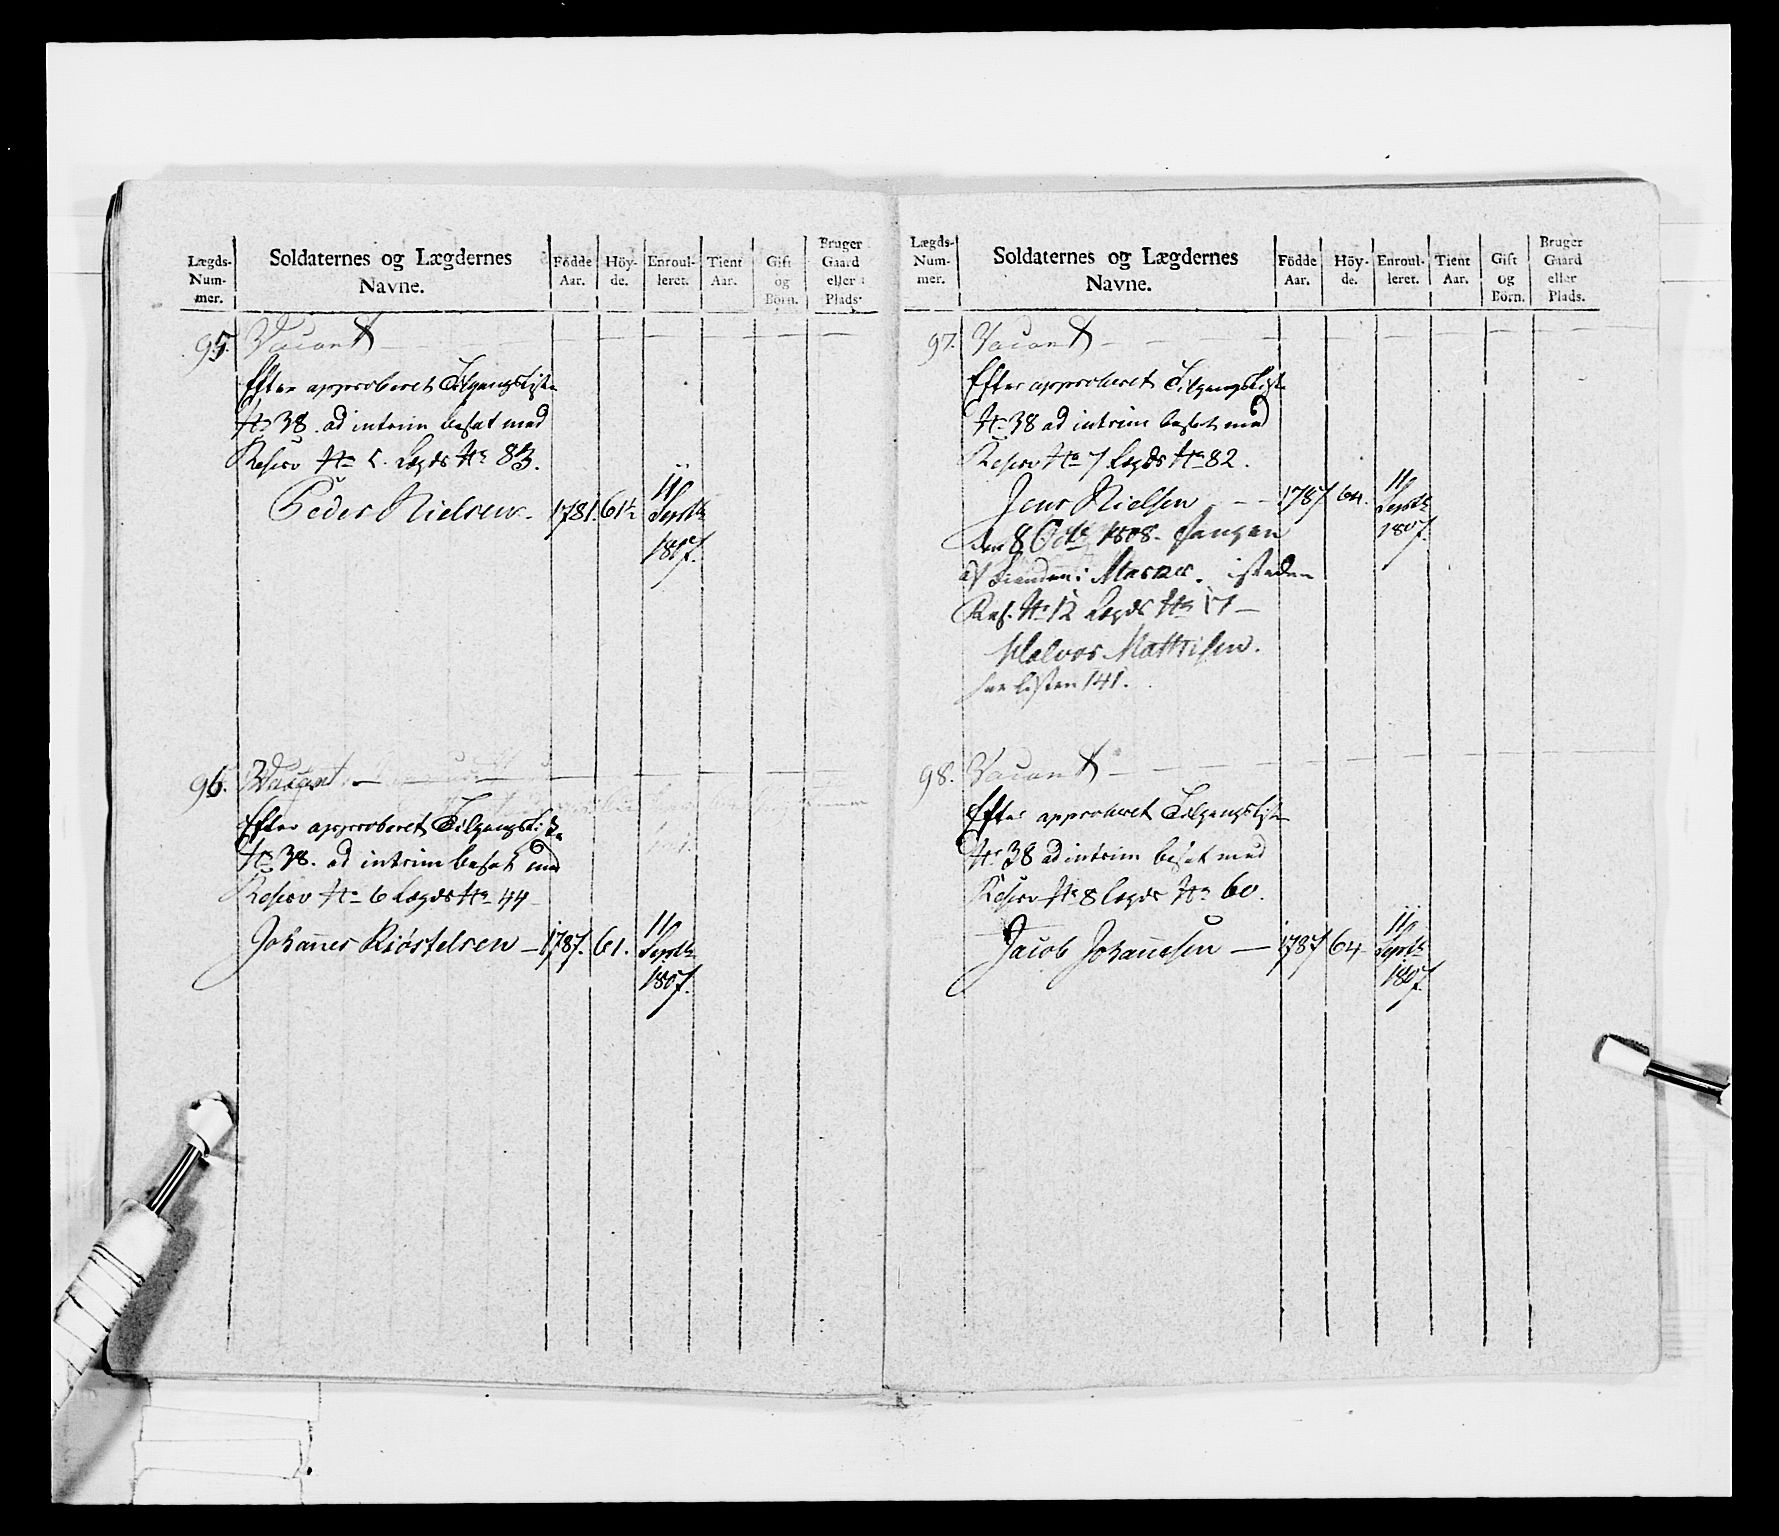 Lægds-Num-mer. Soldaternes og Lægdernes Navne. Födde Aar. Höy-de. Enroul-leret. Tient Aar. Gift og Börn. Bruger Gaard eller Plads.
95. Vacant
Efter approberet Tilgangsliste
No 38. ad interim besat med
Reserv No 5. Lægds No 83.
Peder Nielsen. 1781. 61½ 11 Septbr 1807.
96. Vacant
Efter approberet Tilgangsliste
No 38. ad interim besat med
Reserv No 6 Lægds No 44
Johannes Kiöstelsen 1787. 61. 11 Septbr 1807.
Lægds-Num-mer. Soldaternes og Lægdernes Navne. Födde Aar. Höy-de. Enroul-leret. Tient Aar. Gift og Börn. Bruger Gaard eller Plads.
97. Vacant
Efter approberet Tilgangsliste
No 38 ad interim besat med
Reserv No 7 Lægds No 82.
Jens Nielsen 1787 64. 11 Septbr 1807.
den 8 Octbr 1808. fangen
af fienden i isteden
Res. No 12 Lægds No 17
Halvor Mathisen.
see listen 141.
98. Vacant
Efter approberet Tilgangsliste
No 38 ad interim besat med
Reserv No 8 Lægds No 60.
Jacob Johannesen 1787 64 11 Septbr 1807.